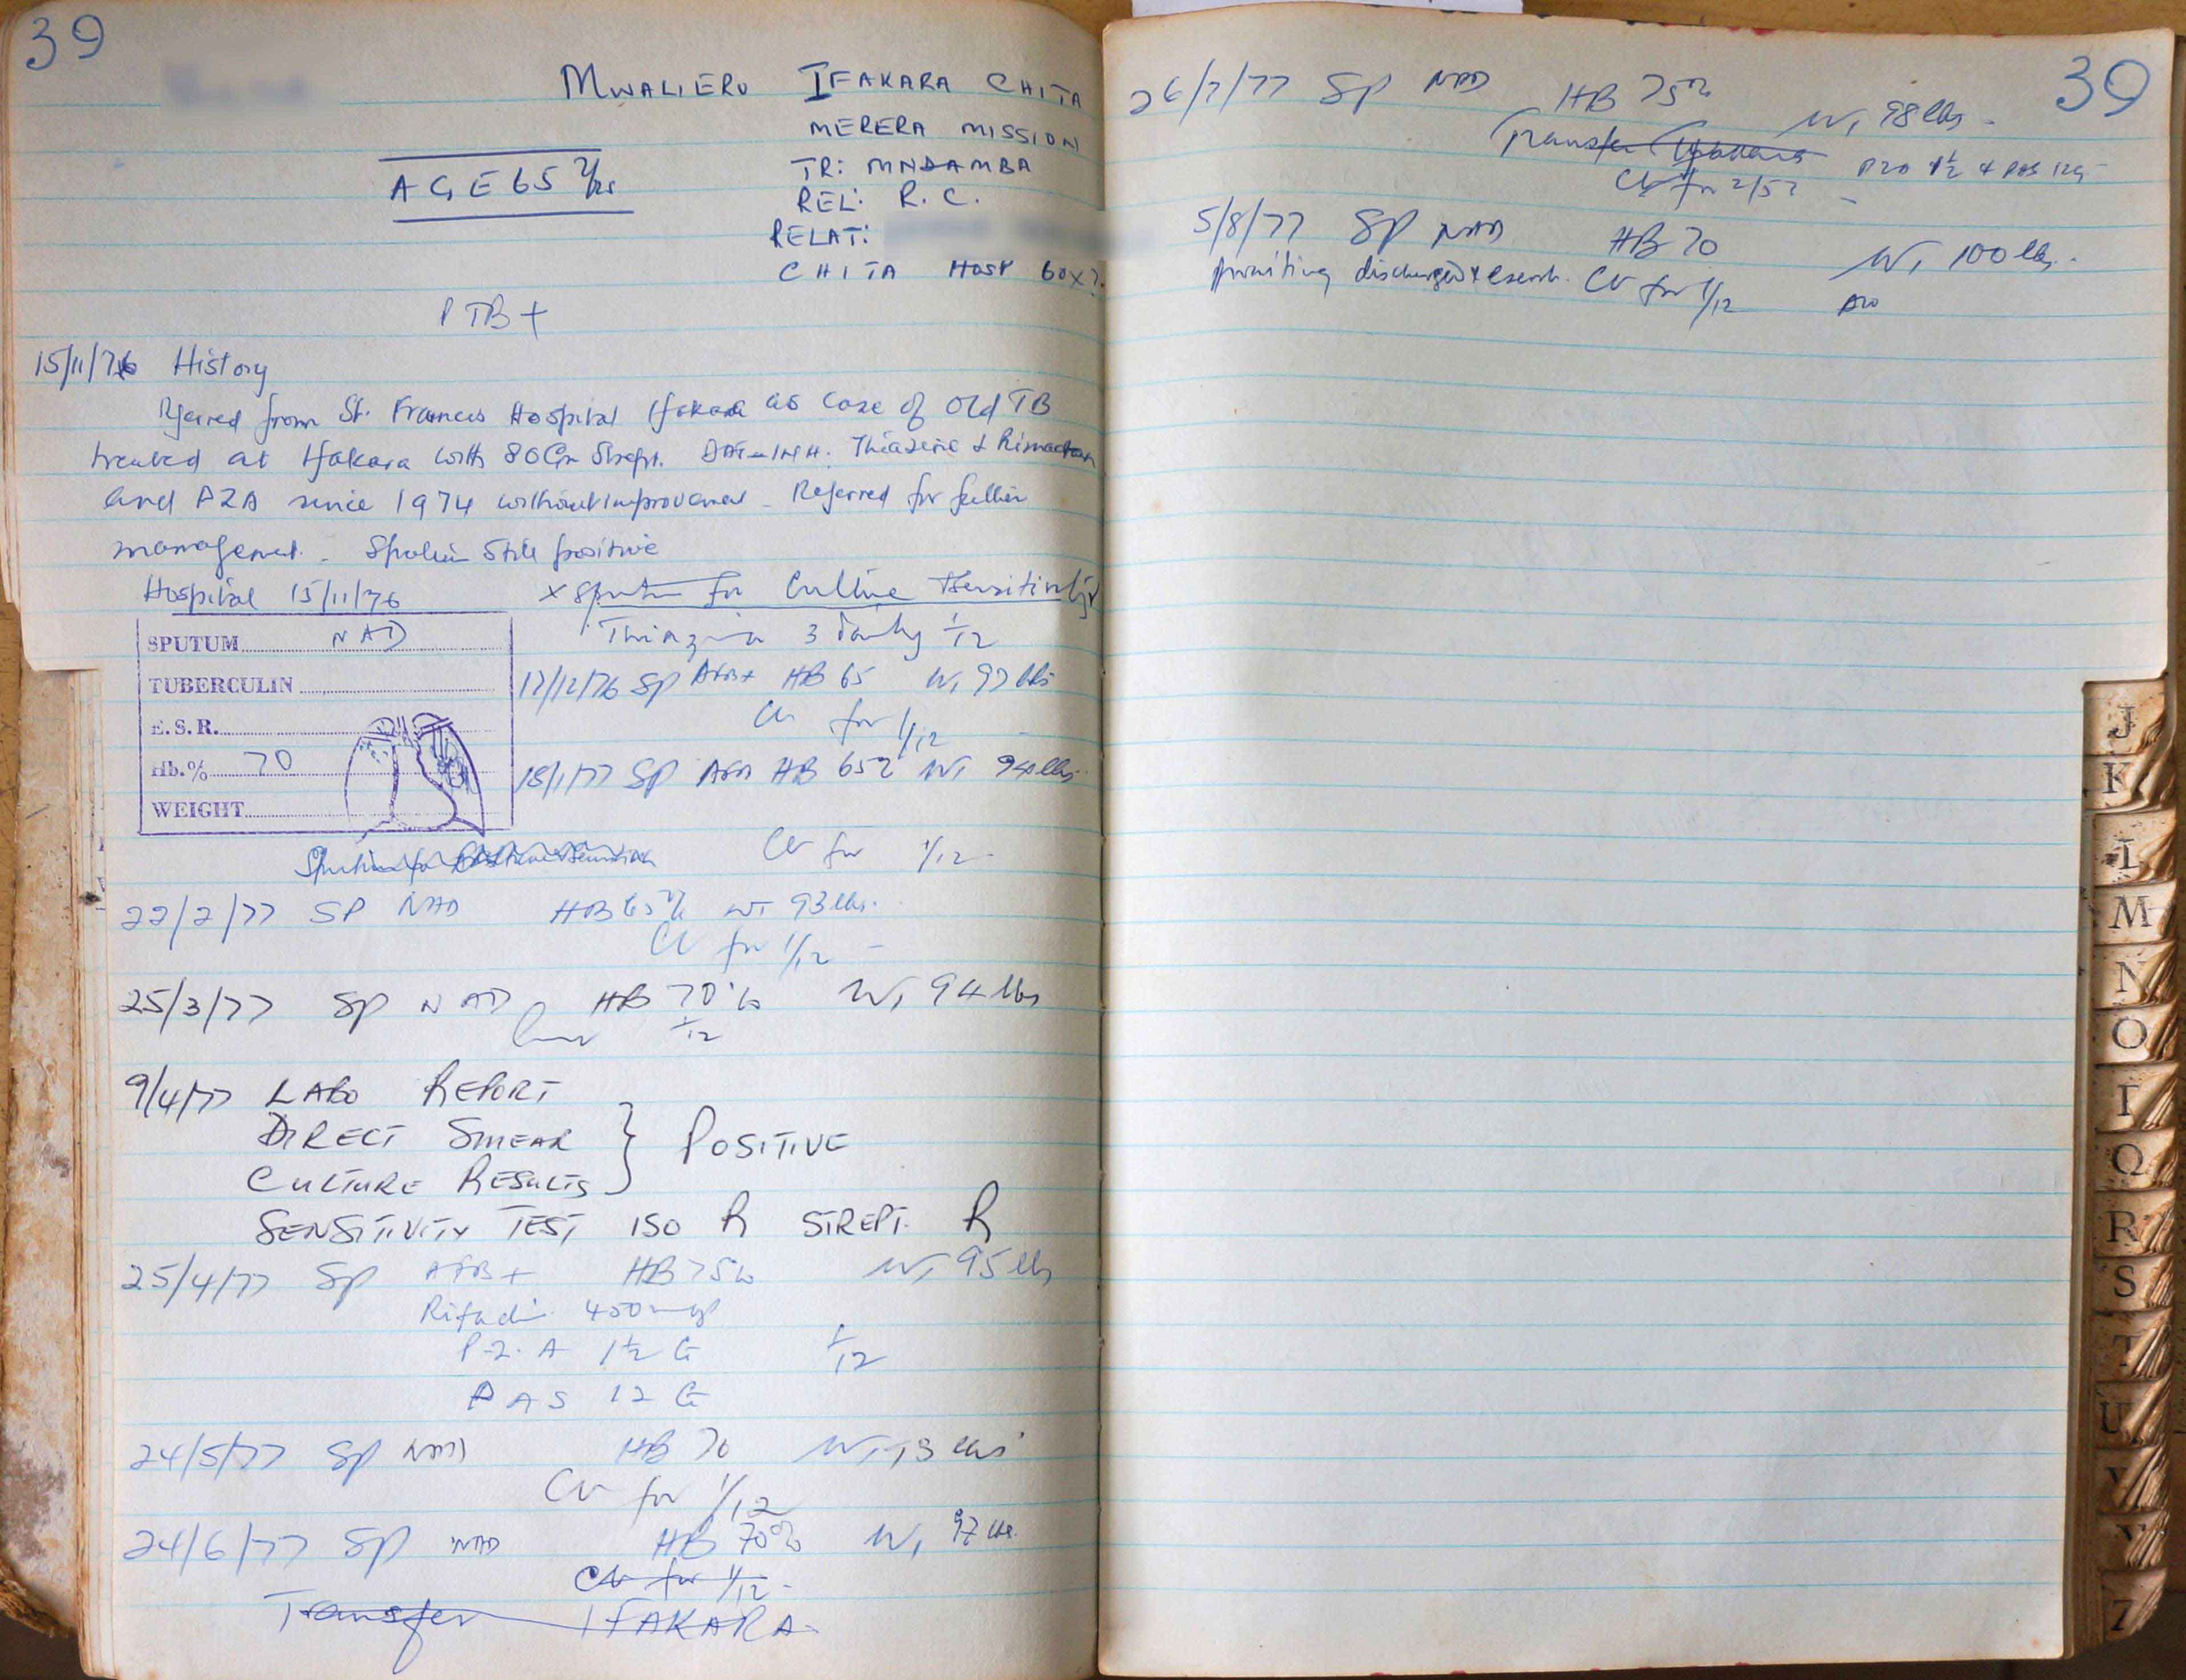 39
MWALIERO IFAKARA CHITA
MERERA MISSION
AGE 65 Yrs
TR: MNDAMBA
REL: R. C.
RELAT:
CHITA HOSP BOX
PTB+
15/11/76 History
Referred from St. Francis Hospital Ifakara as case of old TB
treated at Ifakara with 80Gm Strept. INH. Thiazina &
and PZA since 1974 without improvement - Referred for further
management. Sputum still positive
Hospital 15/11/76
x Sputum for Culture & Sensitivity
Thiazina 3 daily 1/12
SPUTUM NAD
TUBERCULIN
E.S.R.
Hb.% 70
WEIGHT
17/12/76 SP AFB+ HB 65 Wt 97 lbs
for 1/12
18/1/77 SP HB 65% Wt 94 lbs.
Sputum for
for 1/12
22/2/77 SP NAD HB 65% WT 93 lbs.
for 1/12
25/3/77 SP NAD HB 70% Wt 94 lbs
1/12
9/4/77 LABO REPORT
DIRECT SMEAR } POSITIVE
CULTURE RESULTS
SENSITIVITY TEST ISO R STREPT. R
25/4/77 SP AFB+ HB 75% Wt 95 lbs
Rifadin 450 mg
P.Z.A 1½ G 1/12
PAS 12 G
24/5/77 SP NAD HB 70 Wt lbs
for 1/12
24/6/77 SP NAD HB 70% Wt 97 lbs.
for 1/12
Transfer IFAKARA
39
26/7/77 SP NAD HB 75% Wt 98 lbs
Transfer Ifakara 1½ & PAS 12g
for 2/52
5/8/77 SP NAD HB 70 Wt 100 lbs.
awaiting discharge & escort. for 1/12
J
K
L
M
N
O
I
Q
R
S
T
U
V
Z